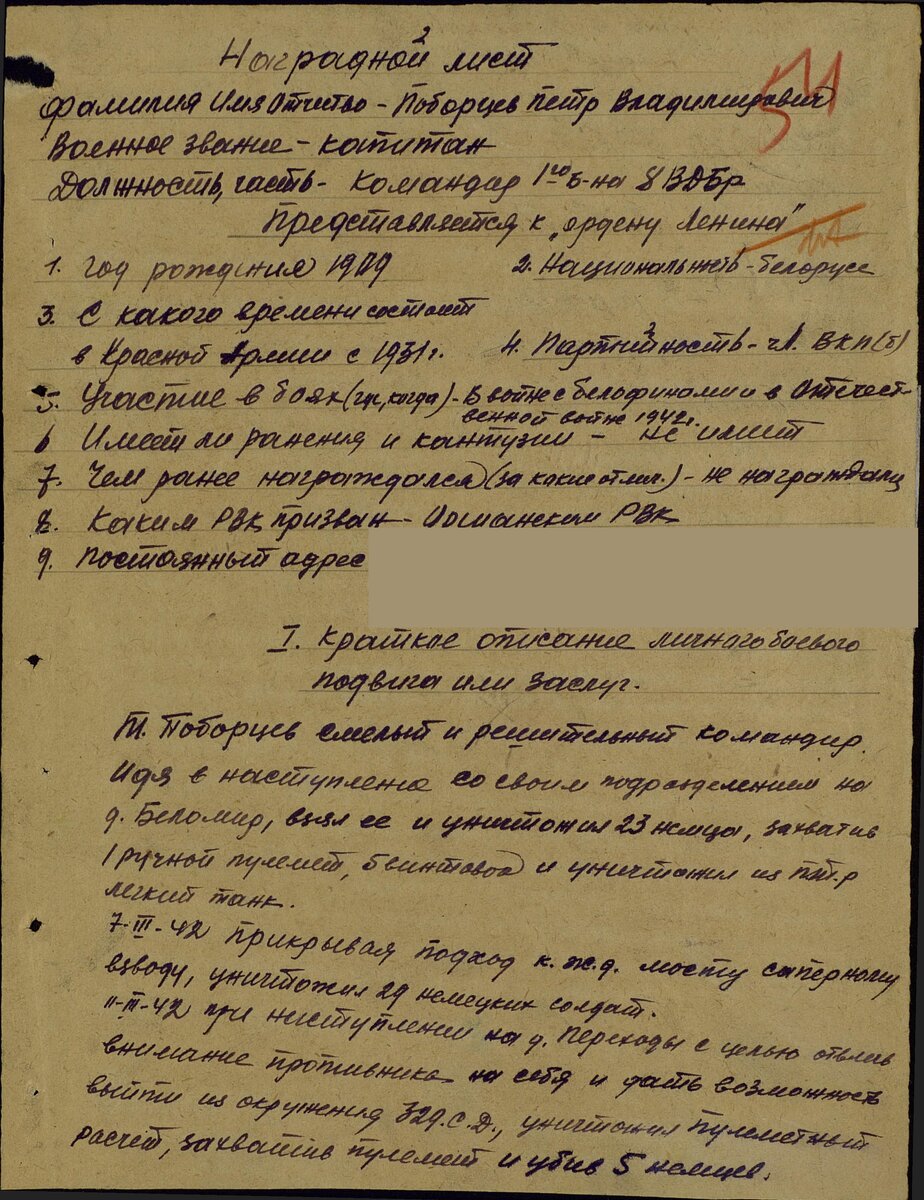 2
Наградной лист
Фамилия Имя Отчество - Поборцев Петр Владимирович
Военное звание - капитан
Должность, часть - Командир 1го б-на 8 ВДБр
Представляется к „ордену Ленина"
1. Год рождения 1909 2. Национальность - белорусс
3. С какого времени состоит
в Красной Армии с 1931 г. 4. Партийность - чл. ВКП(б)
5. Участие в боях (где, когда) - В войне с белофинами и в Отечест-
венной войне 1942 г.
6 Имеет ли ранения и кантузии - не имеет
7. Чем ранее награждался (за какие отлич.) - не награждался
8. Каким РВК призван - Оршанским РВК
9. Постоянный адрес
I. Краткое описание личного боевого
подвига или заслуг.
Т. Поборцев смелый и решительный командир.
Идя в наступление со своим подразделением на
д. Беломир, взял ее и уничтожил 23 немца, захватив
1 ручной пулемет, 6 винтовок и уничтожил из птр
легкий танк.
7-III-42 прикрывая подход к ж.д. мосту саперному
взводу, уничтожил 29 немецких солдат.
11-III-42 при наступлении на д. Переходы с целью отвлечь
внимание противника на себя и дать возможность
выйти из окружения 329 С.Д., уничтожил пулеметный
расчет, захватив пулемет и убив 5 немцев.